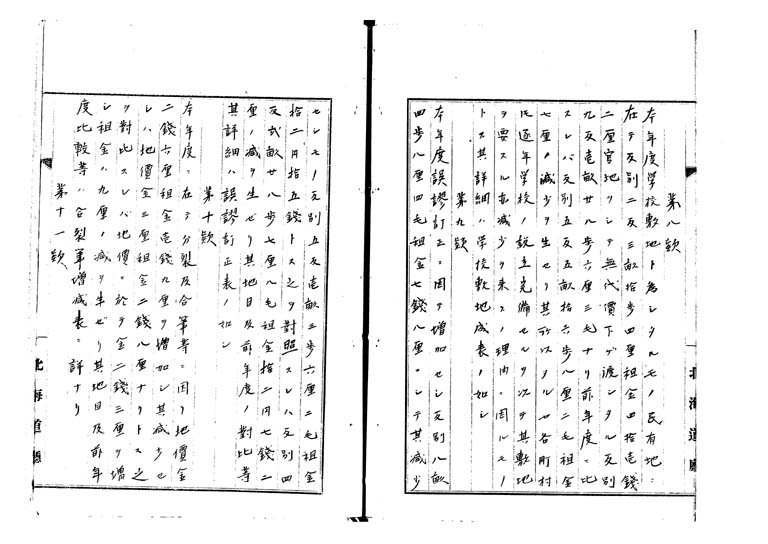 第八欵
本年度学校敷地ト為シタルモノ民有地ニ
在テ反別二反三畝拾歩四厘租金四拾壱錢
二厘官地ニシテ無代價下ゲ渡シタル反別
九反壱畝廿八歩六厘三毛ナリ前年度ニ比
スレバ反別五反五畝拾六歩八厘二毛租金
七厘ノ減少ヲ生セリ其所以タルヤ各町村
氏逐年学校ノ設立完備セルヲ以テ其敷地
ヲ要スル亦減少ヲ来スノ理由ニ因ルモノ
トス其詳細ハ学校敷地成表ノ如シ
第九欵
本年度誤謬訂正ニ因テ増加セシ反別八畝
四歩八厘四毛租金七錢八厘ニシテ其減少
セシモノ反別五反壱畝三歩六厘二毛租金
拾二円拾五錢トス之ヲ對照スレハ反別四
反弍畝廿八歩七厘八毛租金拾二円七錢二
厘ノ減ヲ生ゼリ其地目及前年度ノ對比等
其詳細ハ誤謬訂正表ノ如シ
第十欵
本年度ニ在テ分裂及合筆等ニ因リ地價金
二錢六厘租金壱錢九厘ヲ増加シ其減少セ
シハ地價金三厘租金二錢八厘ナリトス之
ヲ對比スレバ地價ニ於テ金二錢三厘ヲ増
シ租金ハ九厘ノ減ヲ生ゼリ其地目及前年
度比較等ハ合裂筆増減表ニ詳ナリ
第十一欵
北海道廳
北海道廳